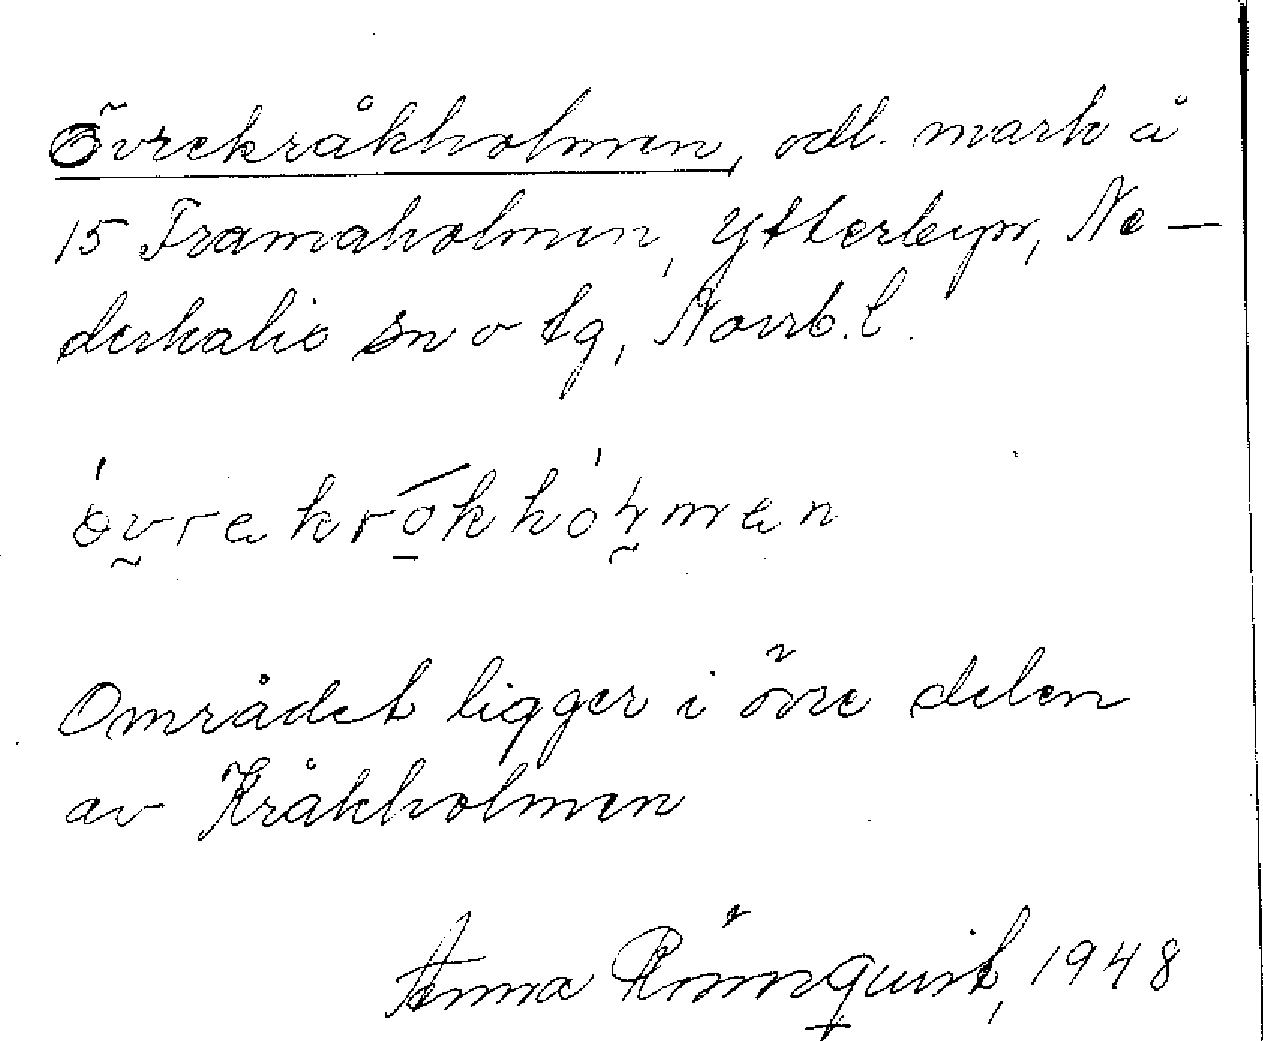 Övrekråkholmen, odl. mark å
15 Framaholmen, Ytterbyn, Ne-
derkalix sn o tg, Norrb. l.
övrekrókhólmen
Området ligger i övre delen
av Kråkholmen
Anna Rönnquist, 1948